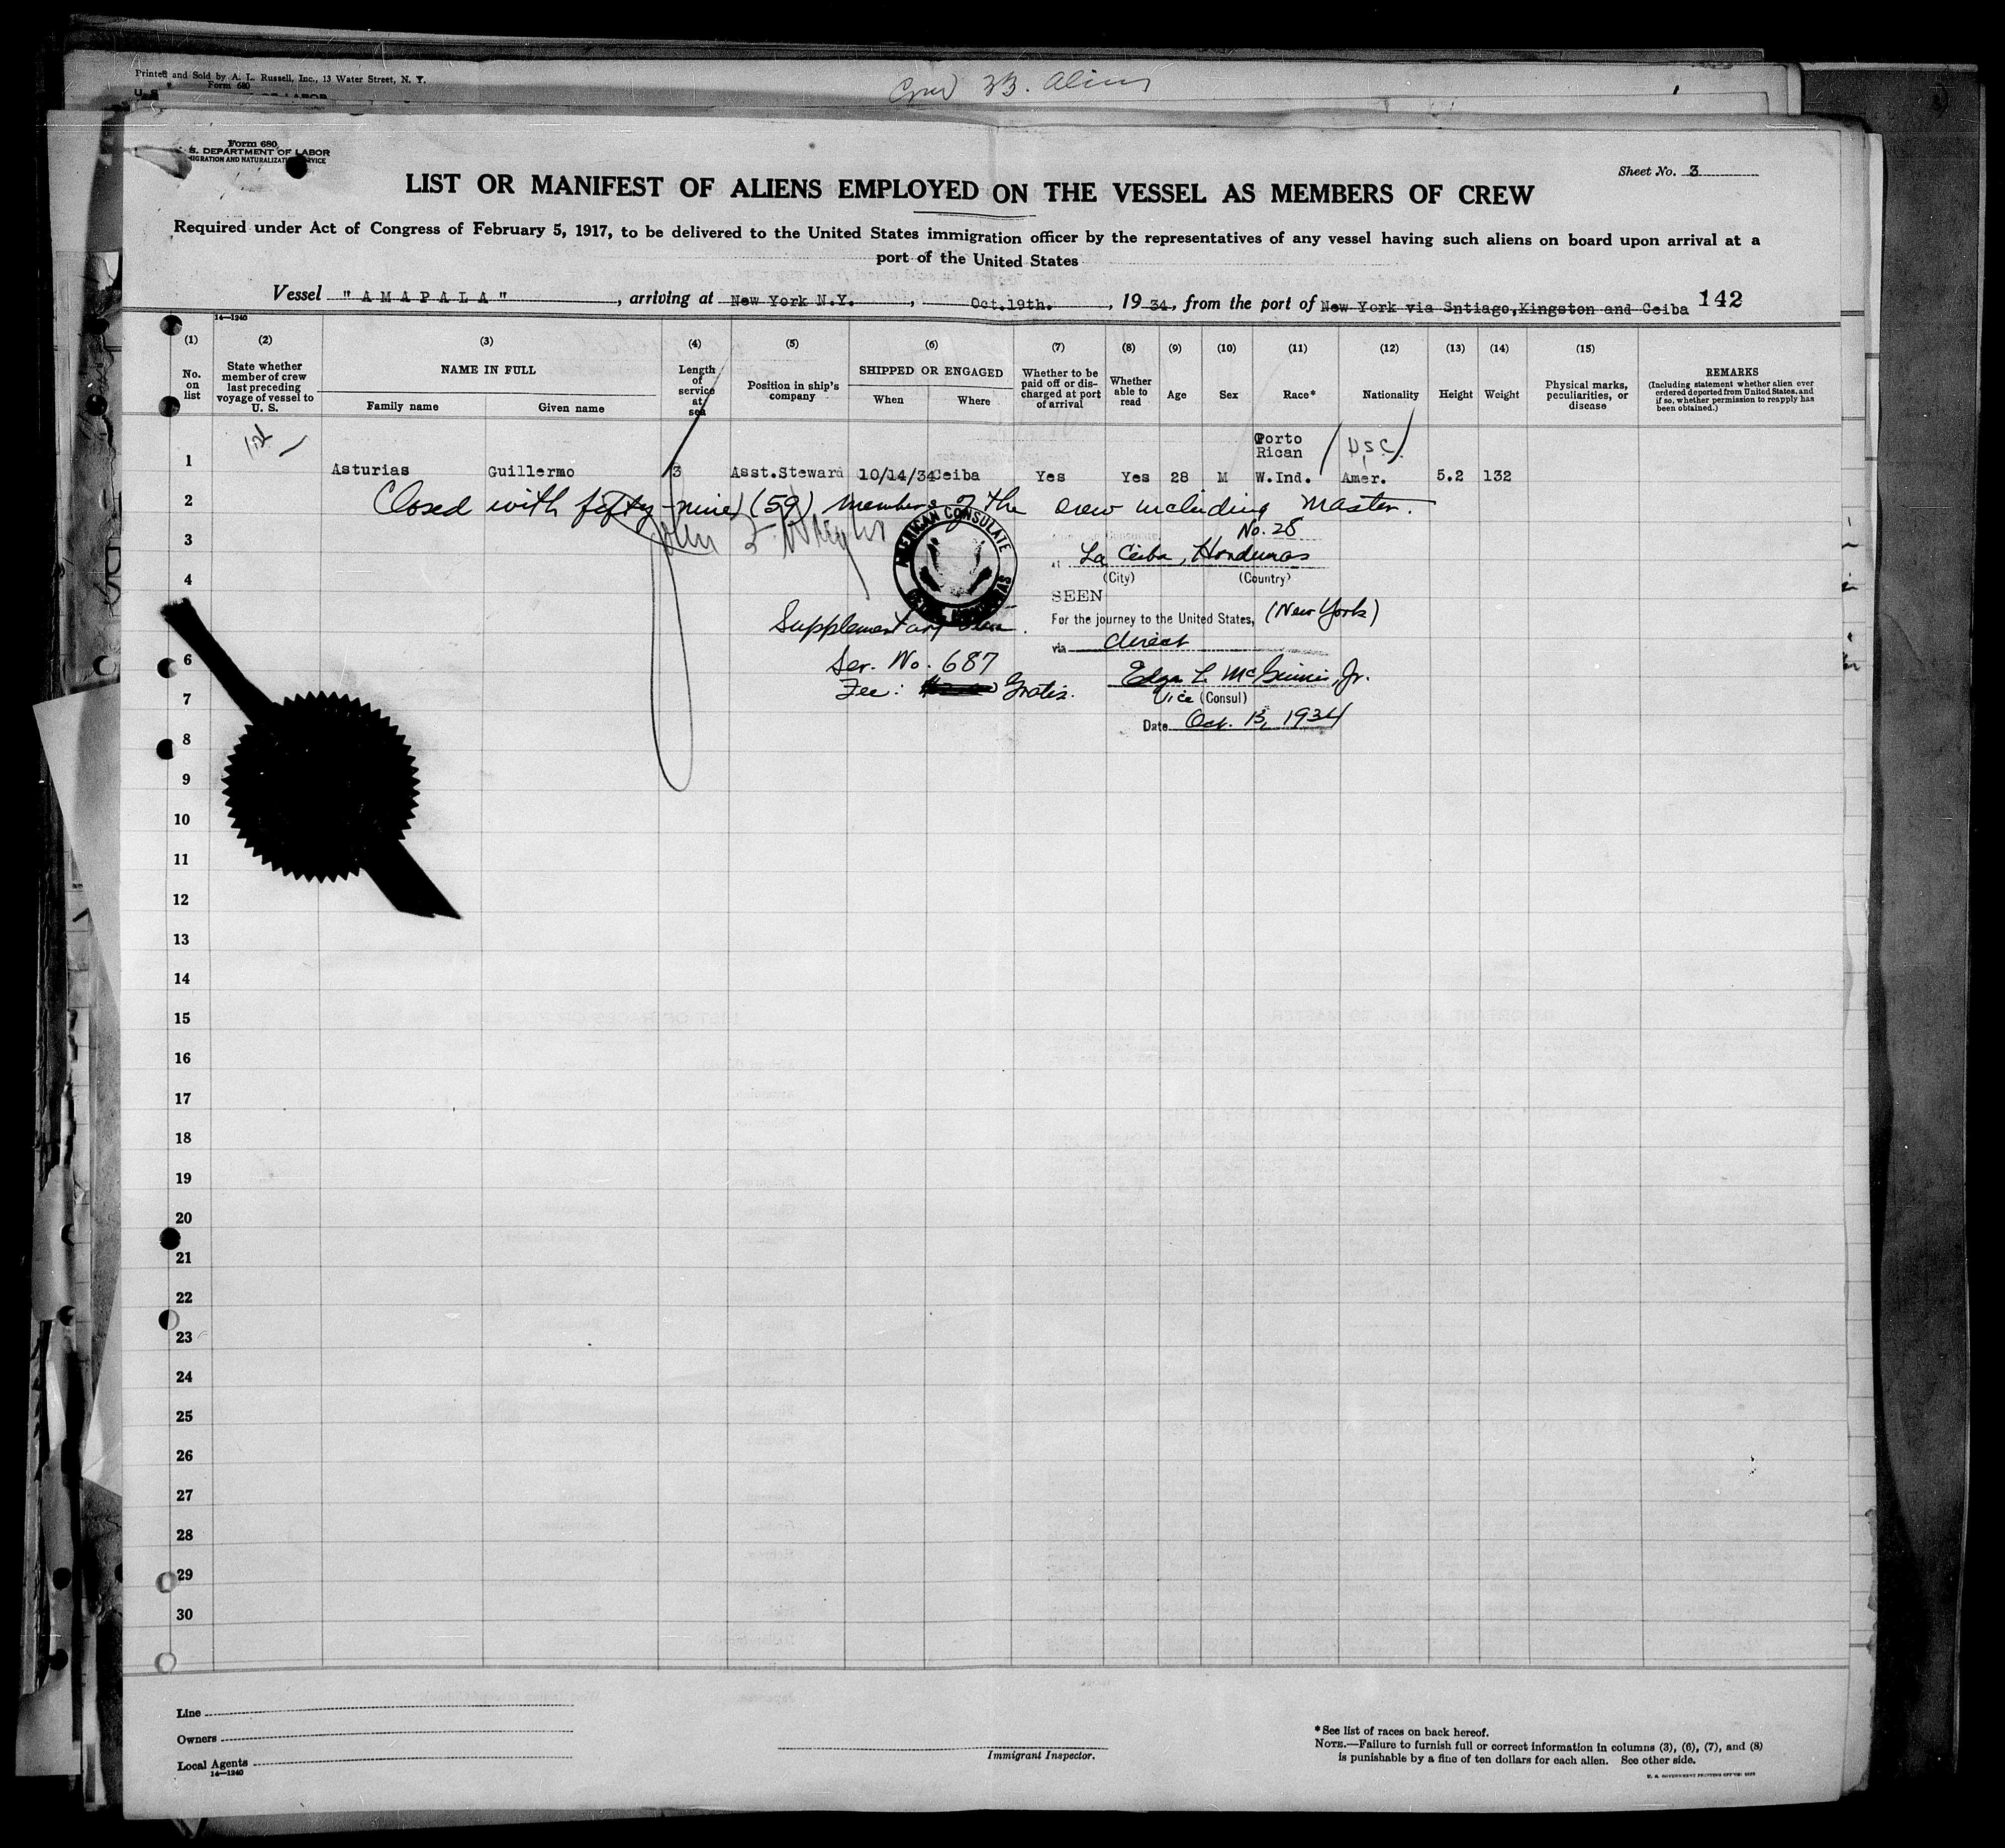 Printed and Sold by A. L. Russell, Inc., 13 Water Street, N. Y.
Form 680
Crew 33. Aliens
Form 680
S. DEPARTMENT OF LABOR
MIGRATION AND NATURALIZATI RVICE
Sheet No. 3
LIST OR MANIFEST OF ALIENS EMPLOYED ON THE VESSEL AS MEMBERS OF CREW
Required under Act of Congress of February 5, 1917, to be delivered to the United States immigration officer by the representatives of any vessel having such aliens on board upon arrival at a
port of the United States
Vessel "AMAPALA", arriving at New York N.Y., Oct.19th., 1934, from the port of New York via Sntiago,Kingston and Ceiba 142
14—1240
(1) (2) (3) (4) (5) (6) (7) (8) (9) (10) (11) (12) (13) (14) (15)
No. on list
State whether member of crew last preceding voyage of vessel to U. S.
NAME IN FULL
Family name
Given name
Length of service at sea
Position in ship's company
SHIPPED OR ENGAGED
When
Where
Whether to be paid off or discharged at port of arrival
Whether able to read
Age
Sex
Race*
Nationality
Height
Weight
Physical marks, peculiarities, or disease
REMARKS
(Including statement whether alien ever ordered deported from United States, and if so, whether permission to reapply has been obtained.)
1st
Porto
Rican
(U.S.C.)
1 Asturias Guillermo 3 Asst.Steward 10/14/34 Ceiba Yes Yes 28 M W.Ind. Amer. 5.2 132
2 Closed with fifty-nine (59) members of the crew including Master.
No. 28
3
AMERICAN CONSULATE
at La Ceiba, Honduras
(City) (Country)
4
SEEN
For the journey to the United States, (New York)
Supplementary
via direct
6
Ser. No. 687
Edga L. McGinnis, Jr.
Fee: Gratis.
7
Vice (Consul)
Date Oct. 13, 1934
8
9
10
11
12
13
14
15
16
17
18
19
20
21
22
23
24
25
26
27
28
29
30
Line
Owners
Local Agents
14—1240
Immigrant Inspector.
*See list of races on back hereof.
NOTE.—Failure to furnish full or correct information in columns (3), (6), (7), and (8)
is punishable by a fine of ten dollars for each alien. See other side.